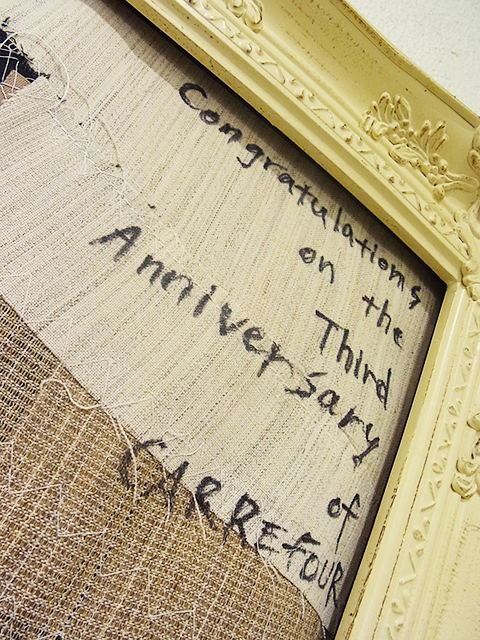 Congratulations
on the
Third
Anniversary
of
CARREFOUR